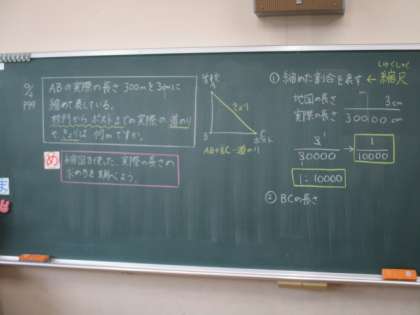 9/4
P99
ABの実際の長さ 300mを3cmに
縮めて表している。
学校からポストまでの実際の道のり
ときょりは 何mですか。
め
縮図を使った、実際の長さの
求め方を調べよう。
学校
A
きょり
B
C
ポスト
AB+BC=道のり
① 縮めた割合を表す ← 縮尺
しゅくしゃく
地図の長さ 3cm
実際の長さ 30000cm
3
30000
→
1
10000
1:10000
② BCの長さ
ま